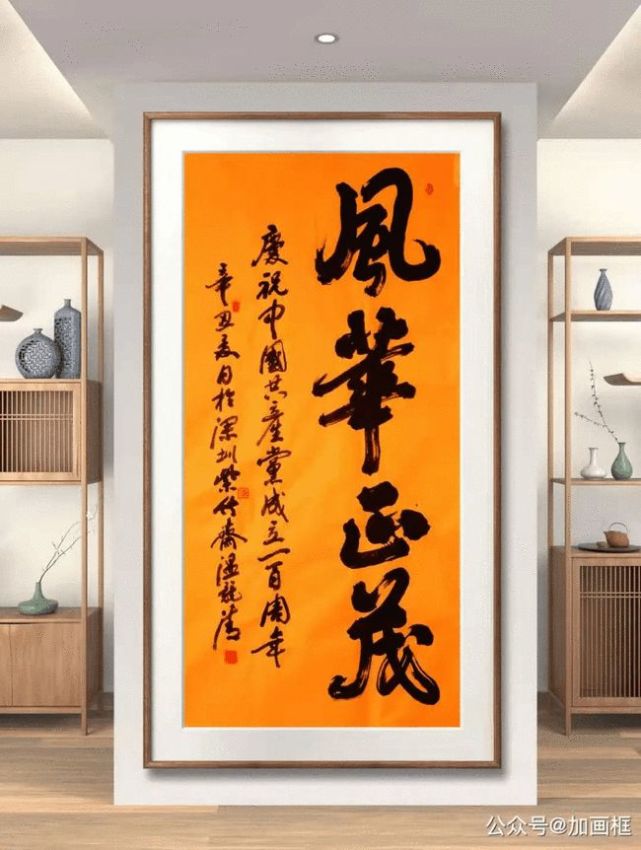 風華正茂
慶祝中國共產黨成立一百周年
辛丑夏月於深圳紫竹齋溫龍濤
公众号@加画框